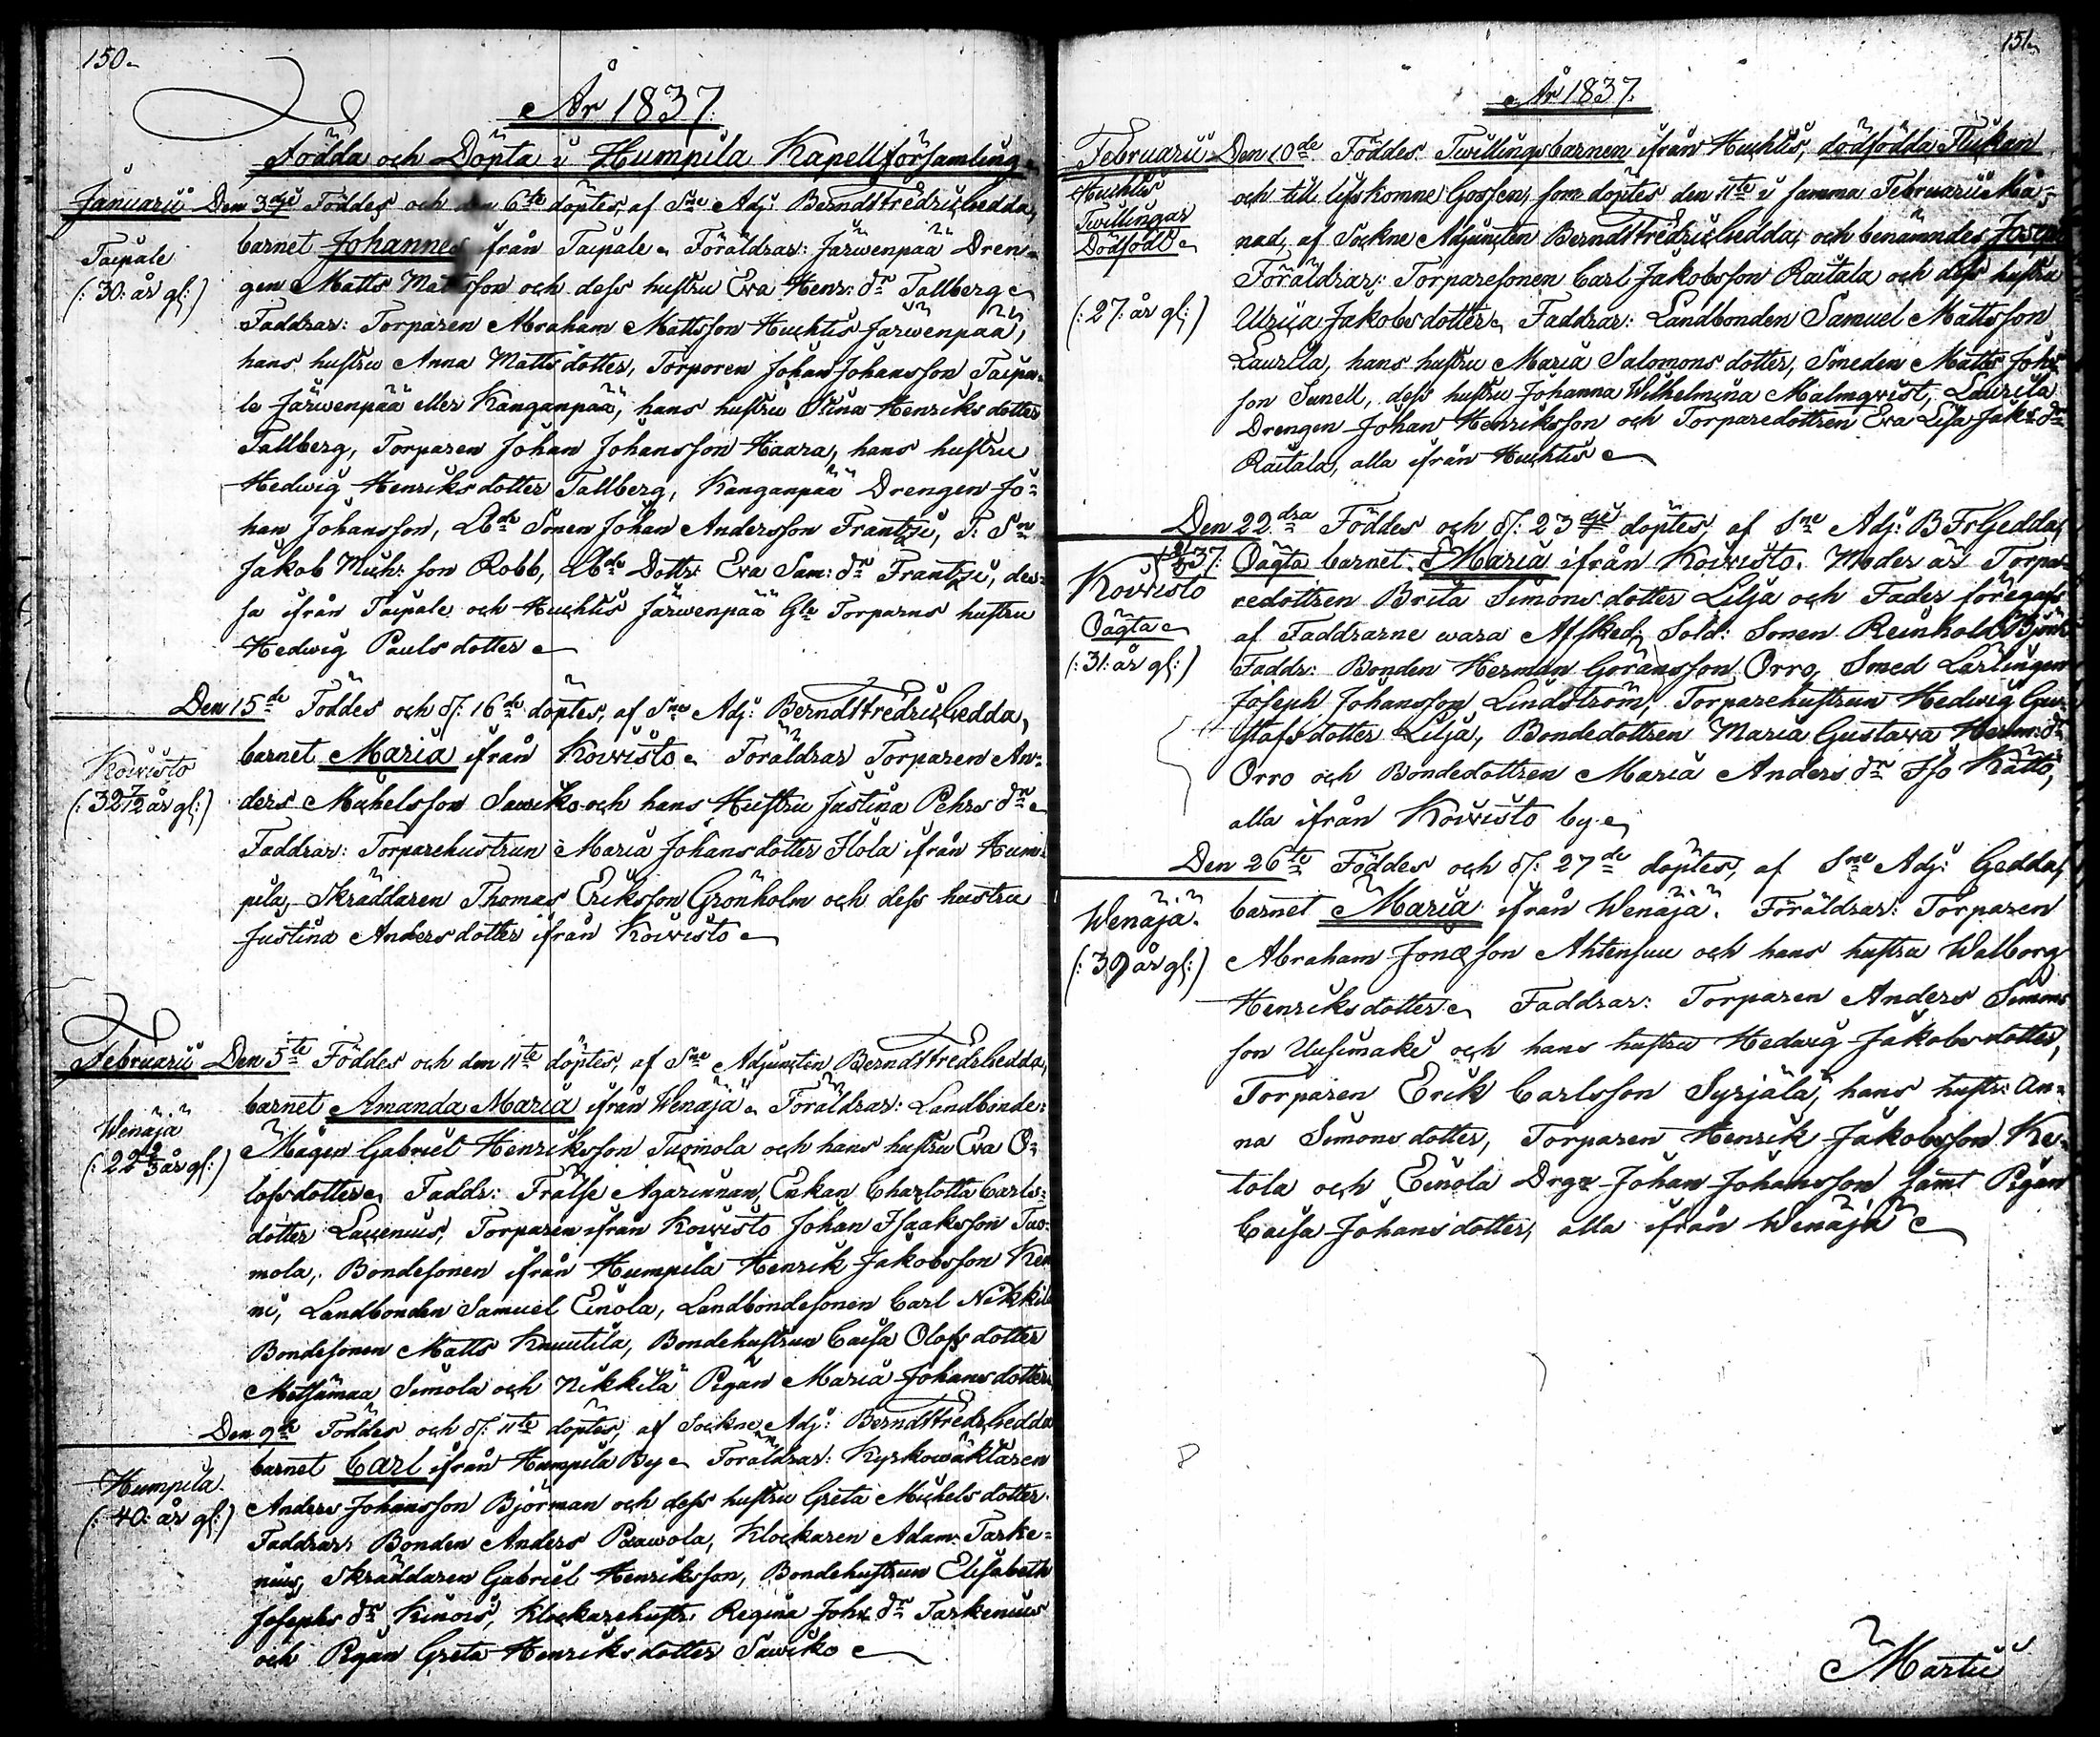 150.
År 1837.
Födda och Döpta i Humpila Kapellförsamling.
Januarii Den 3dje Föddes och den 6te döptes, af Sne Adj: Berndt Fredric Gedda,
Taipale
(: 30: år gl:)
barnet Johannes ifrån Taipale. Föräldrar: Järwenpää Dren-
gen Matts Mattsson och dess hustru Eva Henr: dr Tallberg.
Faddrar: Torparen Abraham Mattsson Huchtis Järwenpää,
hans hustru Anna Matts dotter, Torparen Johan Johansson, Taipa-
le Järwenpää eller Kanganpää, hans hustru Stina Henriks dotter
Tallberg, Torparen Johan Johansson Haara, hans hustru
Hedwig Henriks dotter Tallberg, Kanganpää Drengen Jo-
han Johansson, Lbde Sonen Johan Andersson Frantzi, T: Sn
Jakob Mich: son Robb, Lbde Dottr: Eva Sam: dr Frantzi, des-
sa ifrån Taipale och Huchtis Järwenpää Gla Torparns hustru
Hedwig Pauls dotter
Den 15de Föddes och d/: 16de döptes, af Sne Adj: Berndt Fredric Gedda,
Koivisto
(: 32 1/2 år gl:)
barnet Maria ifrån Koivisto. Föräldrar Torparen An-
ders Michelsson Sawiko och hans Hustru Justina Pehrs dr
Faddrar: Torparehustrun Maria Johans dotter Flola ifrån Hum-
pila, Skräddaren Thomas Eriksson Grönholm och dess hustru
Justina Anders dotter ifrån Koivisto
Februarii Den 5te Föddes och den 11te döptes, af Sne Adjuncten Berndt Fredr Gedda,
Wenäjä
(: 22 2/3 år gl:)
barnet Amanda Maria ifrån Wenäjä. Föräldrar: Landbonde-
Mågen Gabriel Henriksson Tuomola och hans hustru Eva O-
lofsdotter. Faddr: Frälse Ägarinnan, Enkan Charlotta Carls-
dotter Laurenius, Torparen ifrån Koivisto Johan Isaaksson Tuo-
mola, Bondesonen ifrån Humpila Henrik Jakobsson Ken
ni, Landbonden Samuel Einola, Landbondesonen Carl Nikkilä
Bondesonen Matts Knuutila, Bondehustrun Caisa Olofs dotter
Metsämaa Simola och Nikkilä Pigan Maria Johans dotter
Den 9de Föddes och d/: 11te döptes, af Sockne Adj: Berndt Fredr Gedda
Humpila.
(: 40: år gl:)
barnet Carl ifrån Humpila By. Föräldrar: Kyrkowäktaren
Anders Johansson Björman och dess hustru Greta Michels dotter.
Faddrar: Bonden Anders Paawola, Klockaren Adam Tarke-
nius, Skräddaren Gabriel Henriksson, Bondehustrun Elisabeth
Josephs dr Kinois, Klockarehustr. Regina Johs dr Tarkenius
och Pigan Greta Henriks dotter Sawiko
151.
År 1837.
Februarii Den 10de Föddes Twillingsbarnen ifrån Huchtis, dödfödda Flickan
Huchtis
Twillingar
Dödfödt
(: 27: år gl:)
och till lifskomne Gossen, som döptes den 11te i samma Februarii Må-
nad, af Sockne Adjuncten Berndt Fredric Gedda, och benämndes Joseph
Föräldrar: Torparesonen Carl Jakobsson Raitala och dess hustru
Ulrica Jakobs dotter. Faddrar: Landbonden Samuel Mattsson
Laurila, hans hustru Maria Salomons dotter, Smeden Matts Johs
son Sunell, dess hustru Johanna Wilhelmina Malmqvist, Laurila
Drengen Johan Henriksson och Torparedottren Eva Lisa Jaks dr
Raitala, alla ifrån Huchtis
Den 22dra Föddes och d/: 23dje döptes, af Sne Adj: B Fr Gedda,
Koivisto
Oägta
(: 31: år gl:)
Oägta barnet Maria ifrån Koivisto. Moder är Torpa-
redottren Brita Simons dotter Lilja och Fader föregafs
af Faddrarne wara Afsked: Sold: Sonen Reinhold Björk
Faddr: Bonden Herman Göransson Orro, Smed Lärlingen
Joseph Johansson Lindström, Torparehustrun Hedwig Gu-
stafs dotter Lilja, Bondedottren Maria Gustawa Herm: dr
Orro och Bondedottren Maria Anders dr Iso Kätto,
alla ifrån Koivisto by.
Den 26te Föddes och d/: 27de döptes, af Sne Adj: Gedda,
Wenäjä.
(: 39 år gl:)
barnet Maria ifrån Wenäjä. Föräldrar: Torparen
Abraham Jonæson Ahtensuu och hans hustru Walborg
Henriks dotter. Faddrar: Torparen Anders Simons
son Uusimäki och hans hustru Hedwig Jakobs dotter,
Torparen Erik Carlsson Syrjälä, hans hustr: An-
na Simons dotter, Torparen Henrik Jakobsson Ke-
tola och Einola Drgn Johan Johansson samt Pigan
Caisa Johans dotter, alla ifrån Wenäjä
Martii